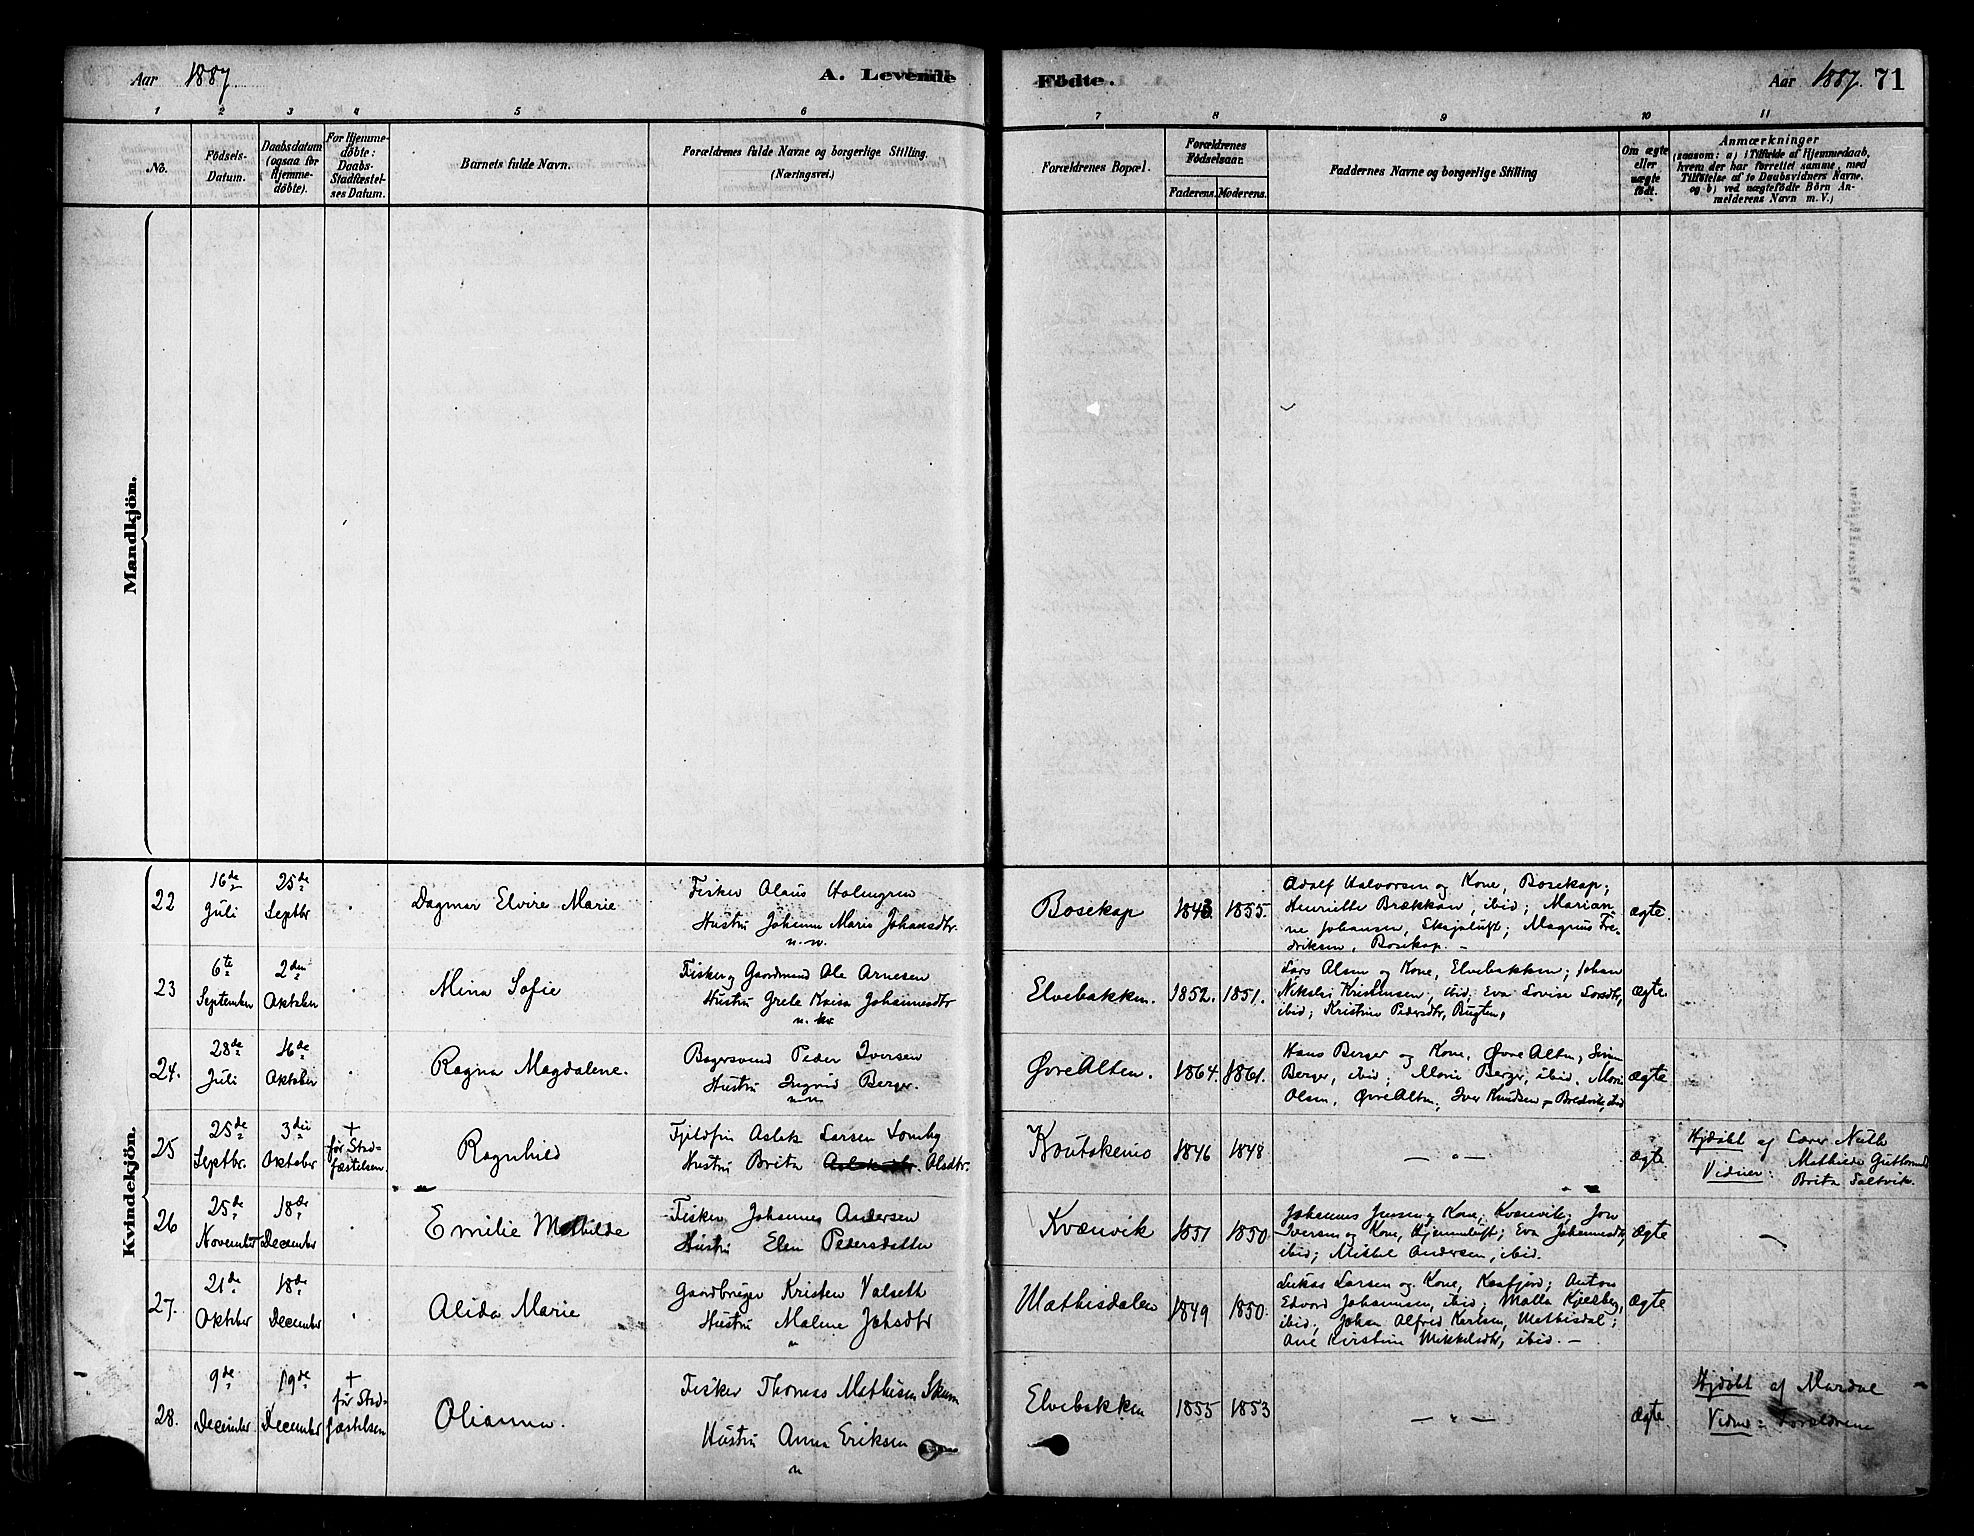 Aar 1887. A. Levende
Fødte. Aar 1887. 71
1 2 3 4 5 6
7 8 9 10 11
No.
Födsels-
Datum.
Daabsdatum
(ogsaa for
Hjemme-
døbte).
For Hjemme-
døbte:
Daabs
Stadfæstel-
ses Datum.
Barnets fulde Navn.
Forældrenes fulde Navne og borgerlige Stilling.
(Næringsvei.)
Forældrenes Bopæl.
Forældrenes
Födselsaar.
Faderens. Moderens.
Faddernes Navne og borgerlige Stilling
Om ægte
eller
uægte
født.
Anmærkninger
(saasom: a) i Tilfælde af Hjemmedaab,
hvem der har forrettet samme, med
Tilføielse af to Daabsvidners Navne.
og b) ved uægtefødte Börn An-
melderens Navn m. V.)
Mandkjön.
Kvindekjön.
22
16de
Juli
25de
Septbr
Dagmar Elvire Marie
Fisker Olaus Holmgren
Hustru Johanne Marie Johansdtr.
n. n.
Bosekop
1843. 1855.
Adolf Halvorsen og Kone, Bosekop;
Henriette Brækkan, ibid; Marian
ne Johansen, Skajaluft; Magnus Fre-
driksen, Bosekop. -
ægte.
23
6te
September
2den
Oktober
Mina Sofie
Fisker og Gaardmand Ole Arnesen
Hustru Grete Kaisa Johannesdtr
n. kv.
Elvebakken.
1852. 1851.
Lars Olsen og Kone, Elvebakken; Johan
Nikolai Kristensen, ibid; Eva Lovise Larsdtr,
ibid; Kristine Pedersdtr, Bugten,
ægte.
24.
28de
Juli
16de
Oktober
Ragna Magdalene.
Bagersvend Peder Iversen
Hustru Ingvid Berger.
n n
Øvre Alten.
1864. 1861.
Hans Berger og Kone, Øvre Alten,
Berger, ibid; Marie Berger, ibid. Marie
Olsen, Øvre Alten; Iver Knudsen, Bredvik, ibid
ægte.
25
25de
Septbr.
3die
Oktober
+
før Stad-
fæstelsen.
Ragnhild
Fjeldfin Aslak Larsen
Hustru Brita Aslaksdtr. Olsdtr.
Koutokeino
1846 1848
— " —
ægte.
Hjdøbt af Lærer Neeth
Vidner: Mathilde
Brita Saltvik.
26
25de
November
18de
December
Emilie Mathilde
Fisker Johannes Andersen
Hustru Elen Pedersdatter
Kvænvik
1851 1850
Johannes Jensen og Kone, Kvænvik; Jon
Iversen og Kone, Hjemmeluft; Eva Johannesdtr,
ibid; Mikkel Andersen, ibid.
ægte
—
27.
21de
Oktober
18de
December
Alida Marie
Gaardbruger Kristen Valseth
Hustru Malene Jakobsdtr
n
Mathisdalen
1849 1850.
Lukas Larsen og Kone, Kaafjord; Anton
Edvard Johannesen, ibid; Malla Kjelsberg,
ibid, Johan Alfred Karlsen, Mathisdal;
Ane Kirstine Mikkelsdtr, ibid. -
ægte
28.
9de
December
19de
December
+
før Stad-
fæstelsen
Olianna.
Fisker Thomas Mathisen Skum
Hustru Anna Eriksen
n
Elvebakken
1855 1853
— " —
ægte.
Hjdøbt af
Vidner: Forældrene